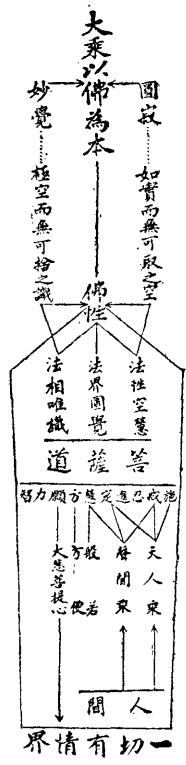 大乘以佛為本
圓寂……如實而無可取之空
妙覺……極空而無可捨之識
佛性
法性空慧
法界圓覺
法相唯識
菩薩道
施戒忍進定慧方願力智
天人乘
聲聞乘
般若
方便
大慈菩提心
人間
一切有情界